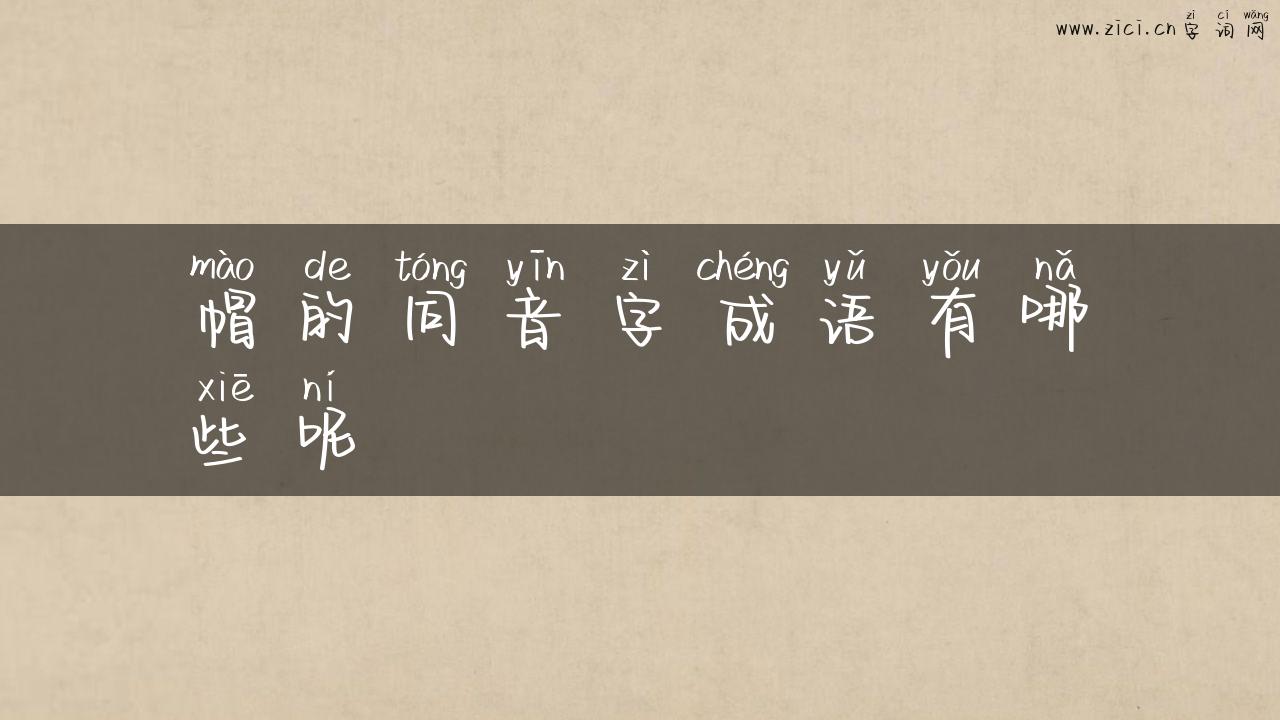 zì cí wǎng
www.zici.cn 字词网
mào de tóng yīn zì chéng yǔ yǒu nǎ
帽的同音字成语有哪
xiē ní
些呢